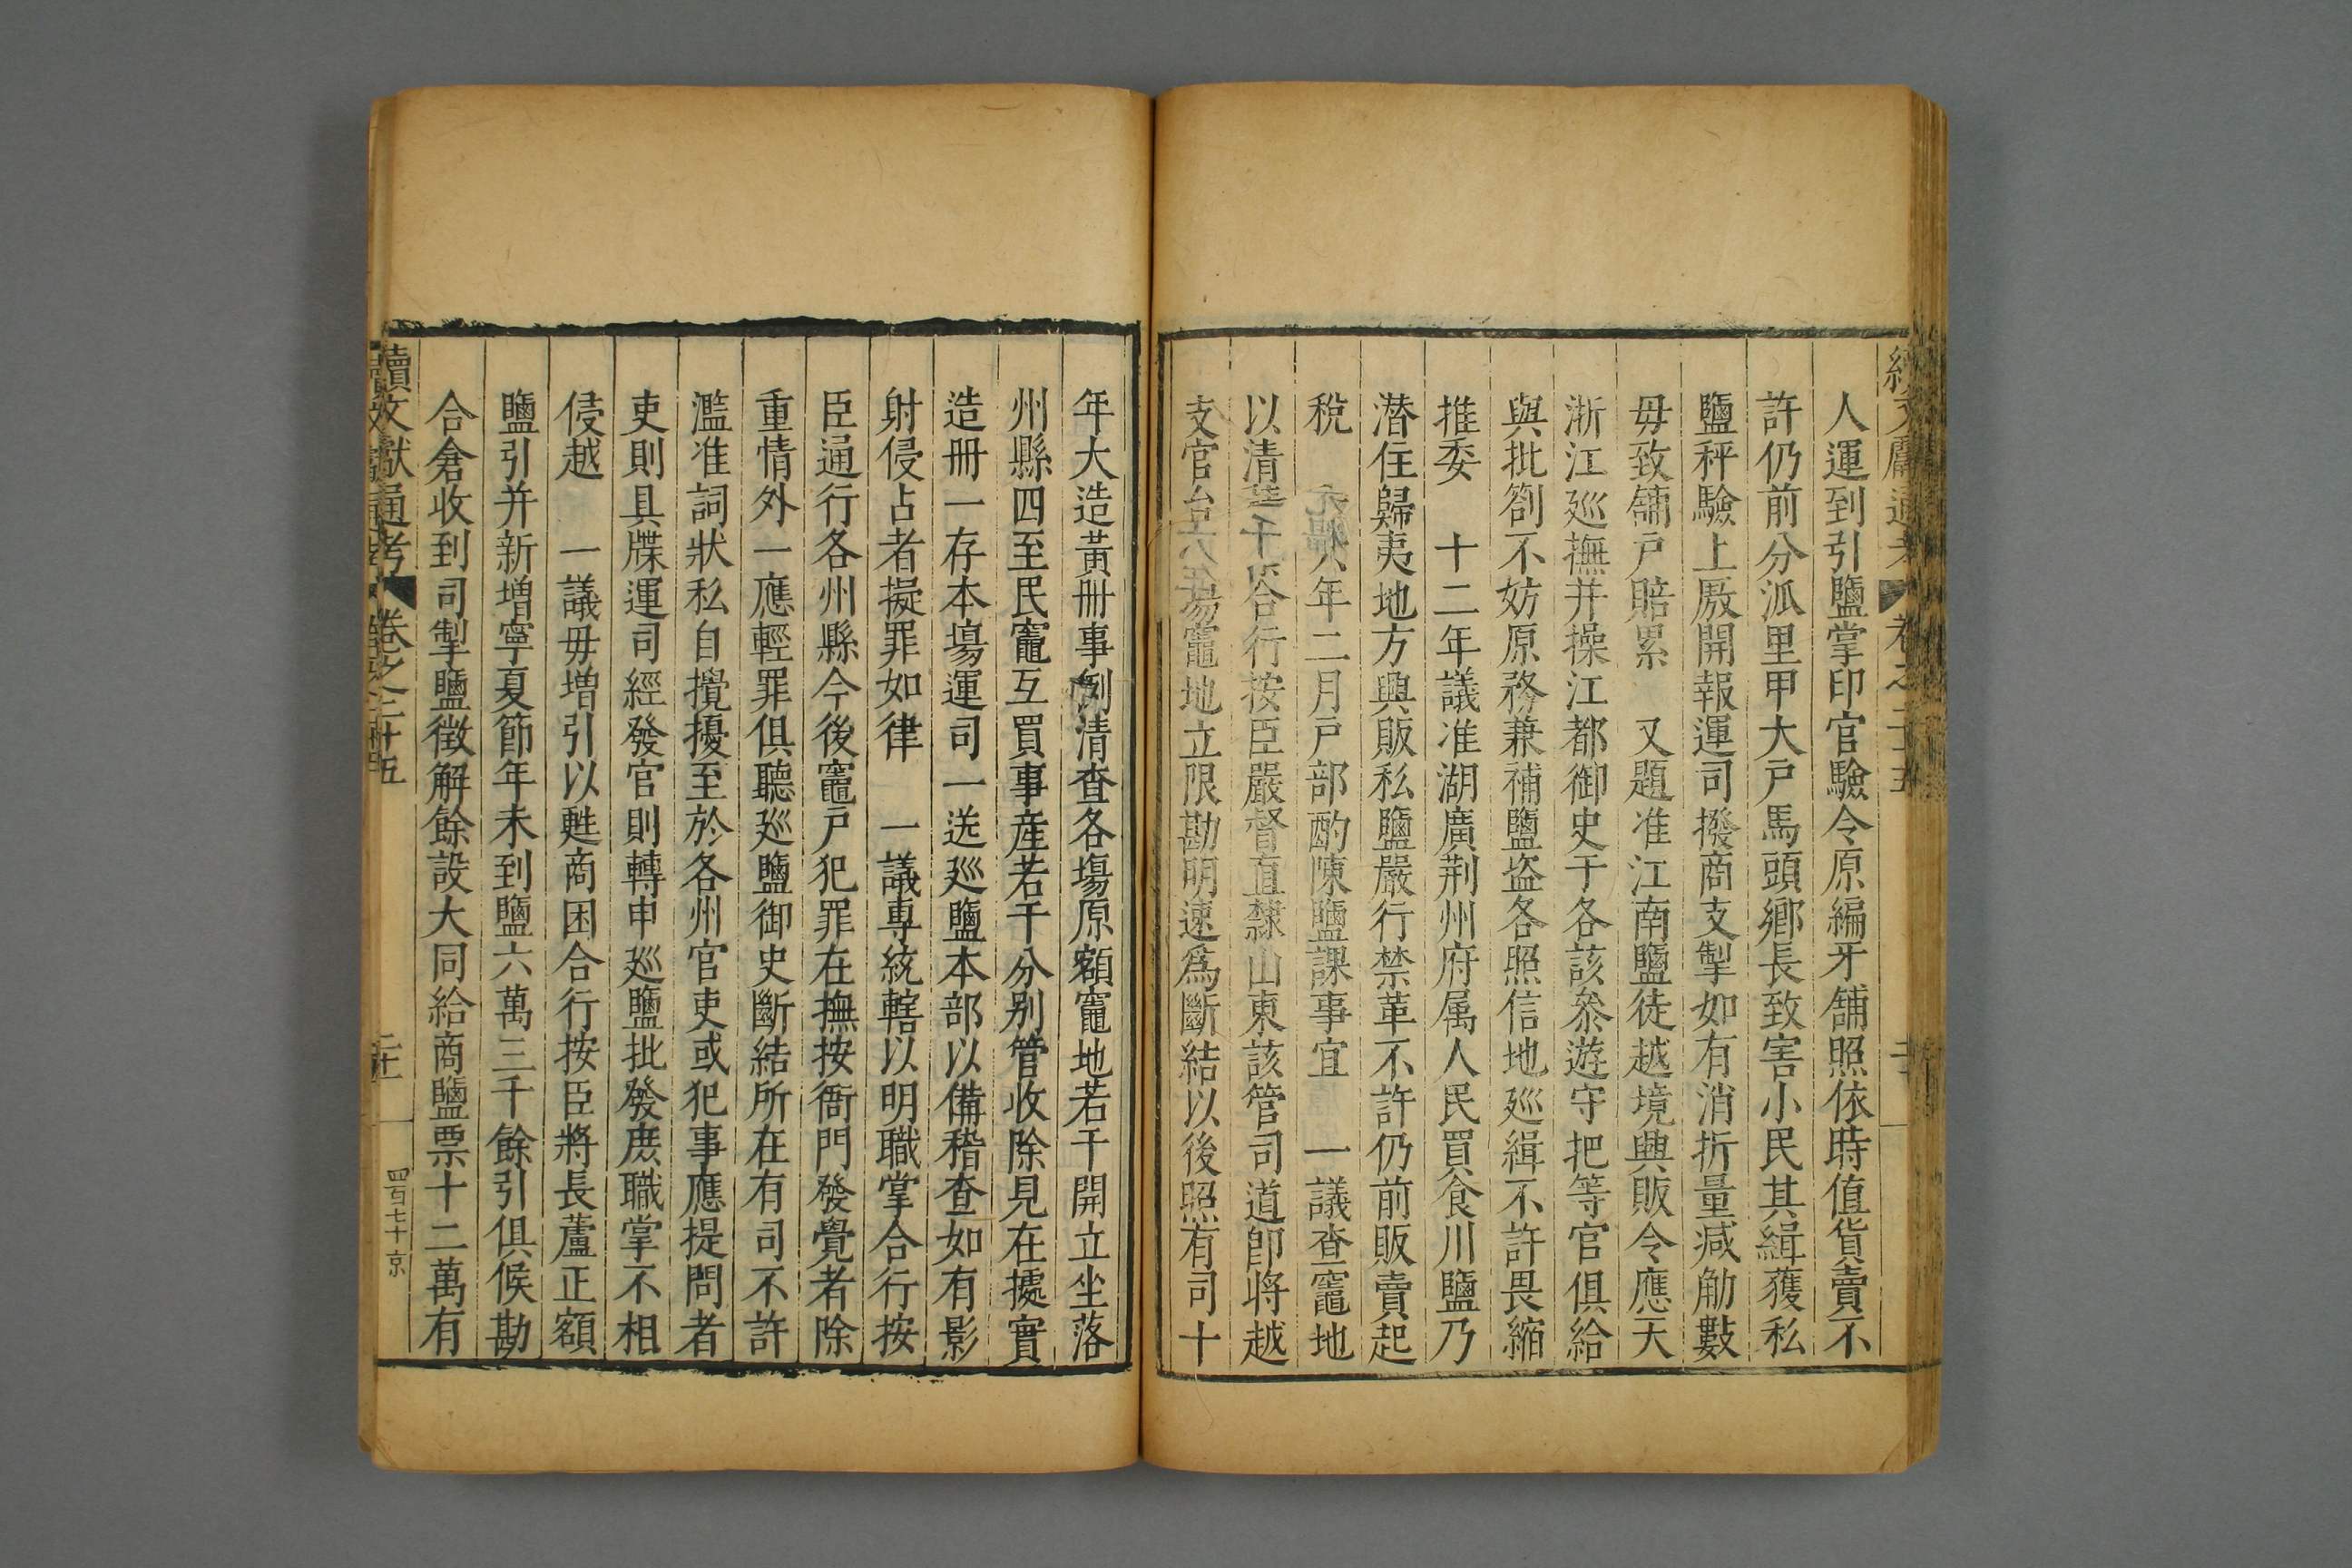 人運到引鹽掌印官驗令原編牙舖照依時值貨賣不
許仍前分派里甲大戶馬頭鄉長致害小民其緝獲私
鹽秤驗上厫開報運司撥商支掣如有消折量減觔數
毋致舖戶賠累　又題准江南鹽徒越境興販令應天
浙江巡撫并操江都御史于各該叅遊守把等官俱給
與批劄不妨原務兼補鹽盜各照信地巡緝不許畏縮
推委　十二年議准湖廣荆州府属人民買食川鹽乃
潛住歸夷地方興販私鹽嚴行禁革不許仍前販賣起
稅　八年二月戶部酌陳鹽課事宜　一議查竈地
以清　合行按臣嚴督直隸山東該管司道卽将越
支官　場竈地立限勘明速爲斷結以後照有司十
年大造黃冊事例清查各塲原額竈地若干開立坐落
州縣四至民竈互買事産若干分别管收除見在據實
造冊一存本塲運司一送巡鹽本部以備稽查如有影
射侵占者擬罪如律　一議專統轄以明職掌合行按
臣通行各州縣今後竈戶犯罪在撫按衙門發覺者除
重情外一應輕罪俱聽巡鹽御史斷結所在有司不許
濫准詞狀私自攪擾至於各州官吏或犯事應提問者
吏則具牒運司經發官則轉申巡鹽批發庶職掌不相
侵越　一議毋增引以甦商困合行按臣將長蘆正額
鹽引并新增寧夏節年未到鹽六萬三千餘引俱候勘
合倉收到司掣鹽徵解餘設大同給商鹽票十二萬有
續文獻通考　卷之二十五　　二十一　四百七十　京